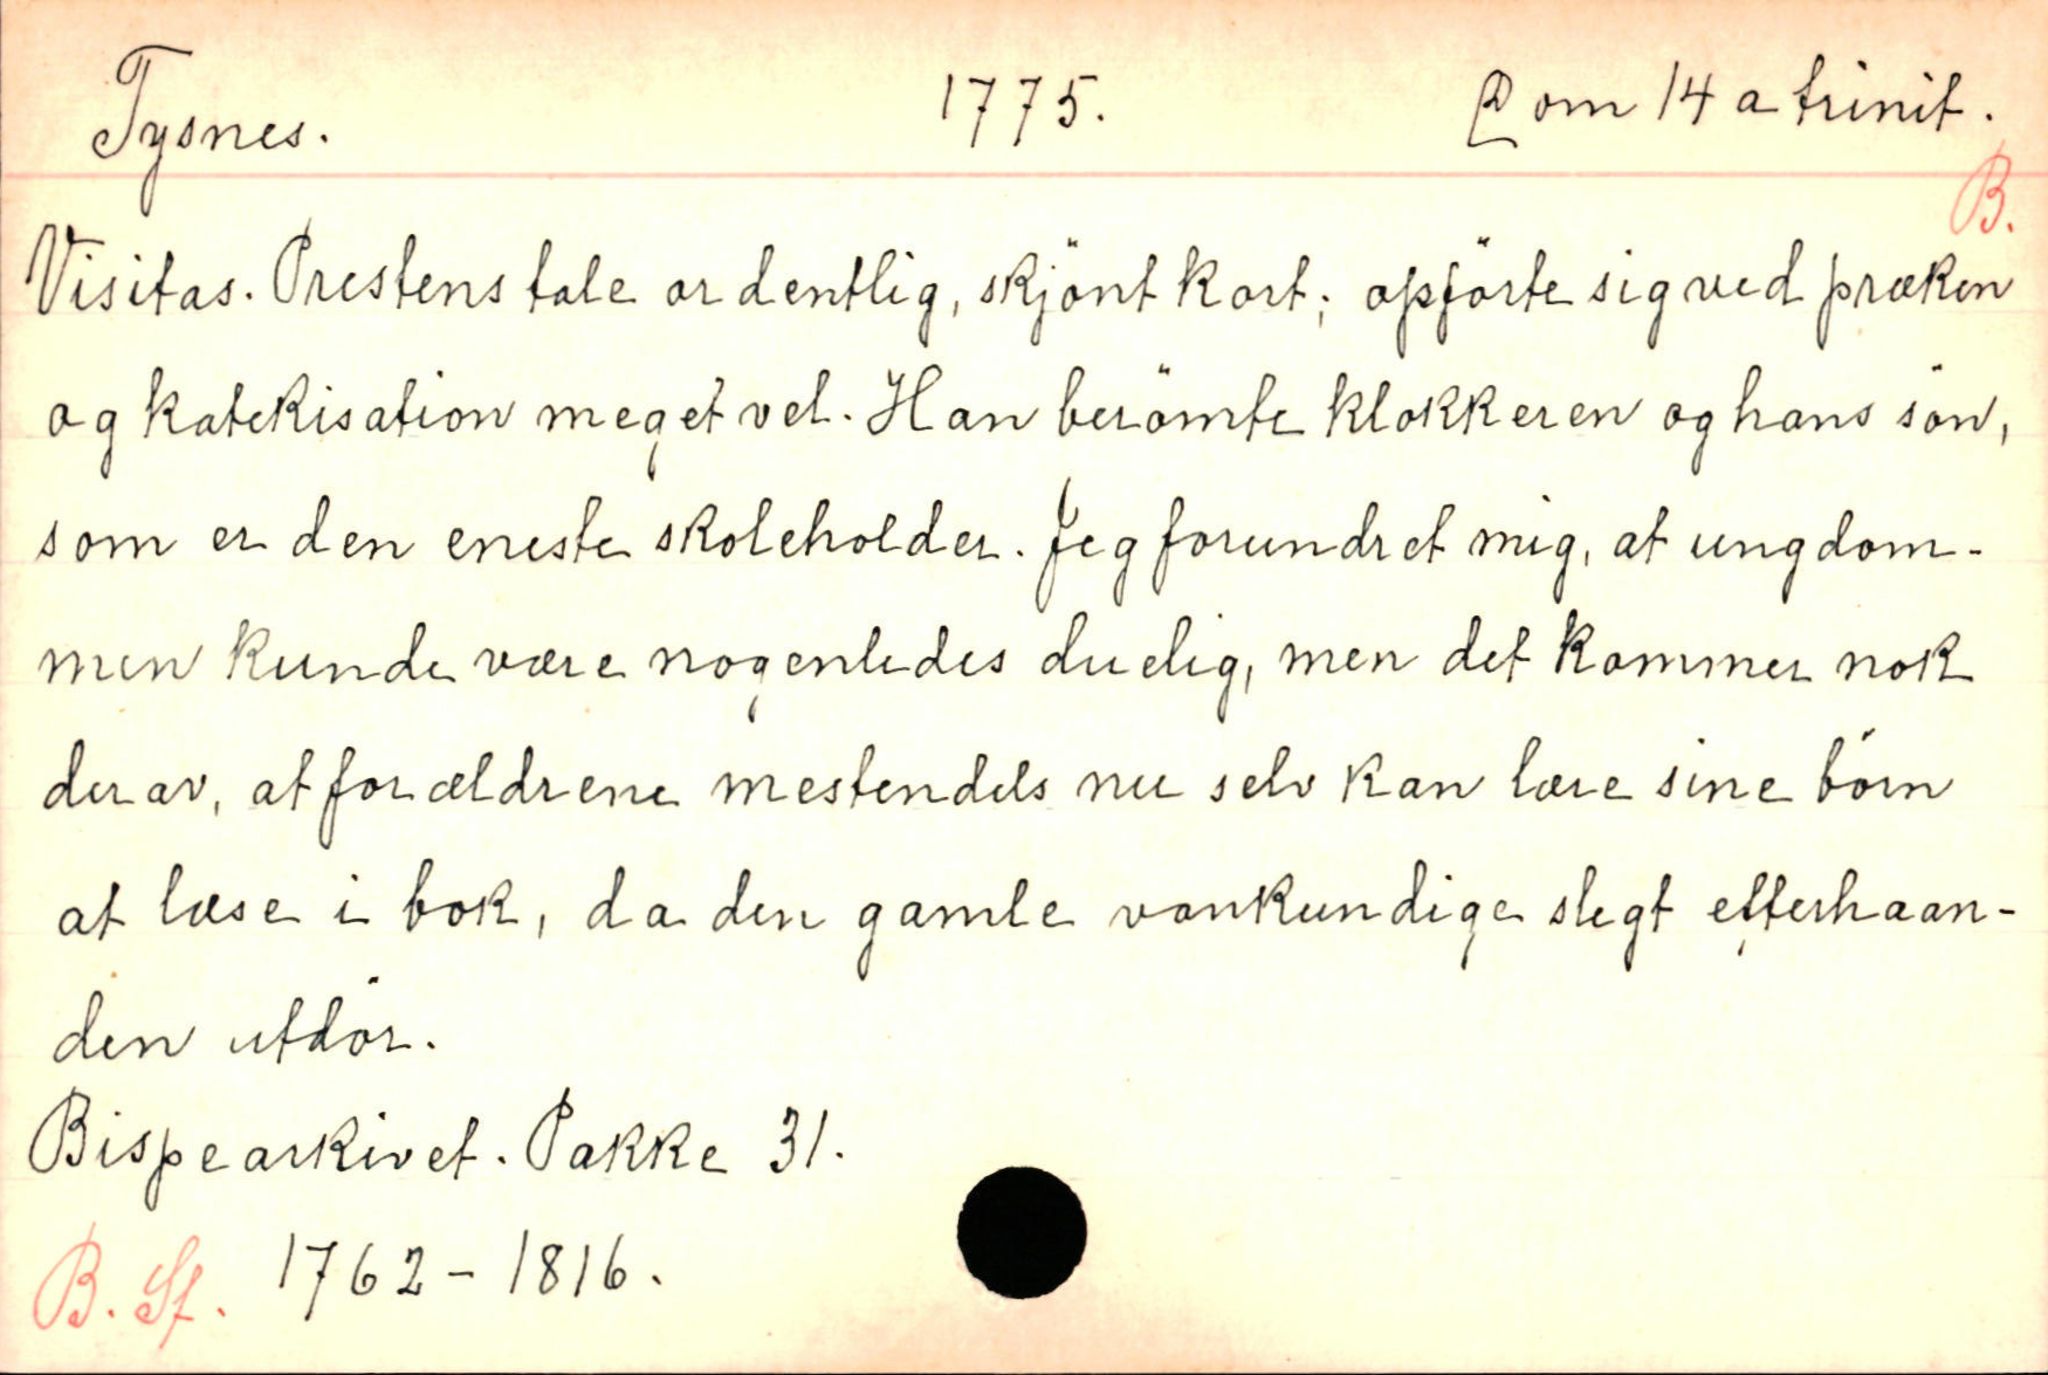 Tysnes. 1775. Dom 14 a trinit.
B.
Visitas. Prestens tale ordentlig, skjönt kort; opförte sig ved præken
og katekisation meget vel. Han berömte klokkeren og hans sön,
som er den eneste skoleholder. Jeg forundret mig, at ungdom-
men kunde være nogenledes duelig, men det kommer nok
derav, at forældrene mestendels nu selv kan lære sine börn
at læse i bok, da den gamle vankundige slegt efterhaan-
den utdör.
Bispearkivet. Pakke 31.
B. Sf. 1762-1816.